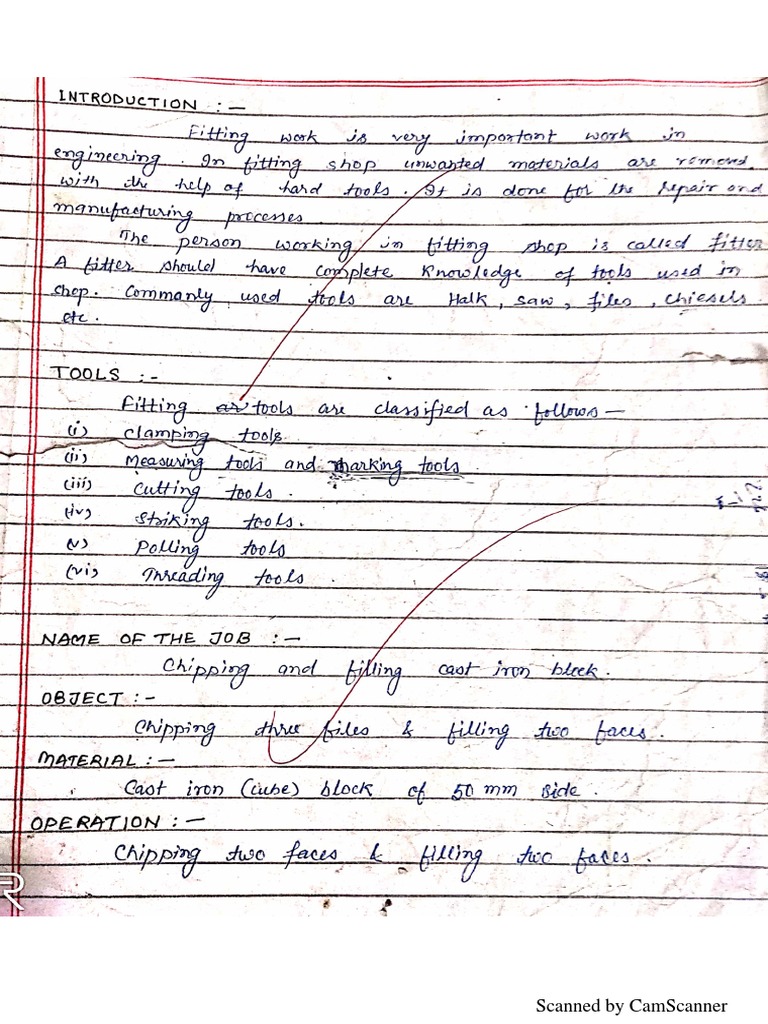 INTRODUCTION :-
Fitting work is very important work in
engineering. In fitting shop unwanted materials are removed
with the help of hard tools. It is done for the repair and
manufacturing processes
The person working in fitting shop is called fitter
A fitter should have complete knowledge of tools used in
shop. Commanly used tools are Halk, saw, files, chiesels
etc.
TOOLS :-
Fitting tools are classified as follows-
(i) Clamping tools
(ii) Measuring tools and marking tools.
(iii) Cutting tools.
(iv) Striking tools.
(v) Polling tools
(vi) Threading tools.
NAME OF THE JOB :-
Chipping and filling cast iron block.
OBJECT :-
Chipping three files & filling two faces.
MATERIAL :-
Cast iron (cube) block of 50 mm side.
OPERATION :-
Chipping two faces & filling two faces.
Scanned by CamScanner